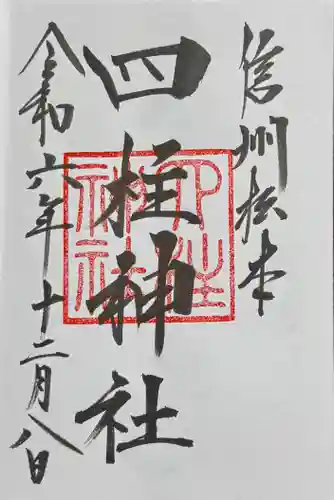 信州松本
四柱神社
四柱神社
令和六年十二月八日